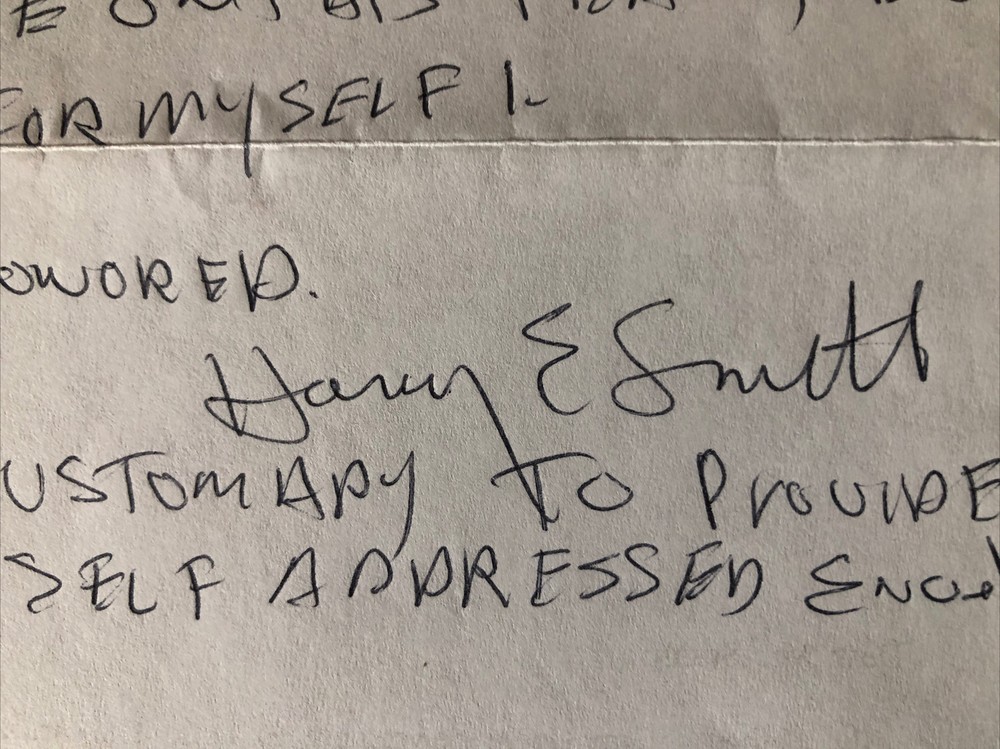 FOR MYSELF I
OWORED.
Harry E Smith
USTOMARY TO PROVIDE
SELF ADDRESSED